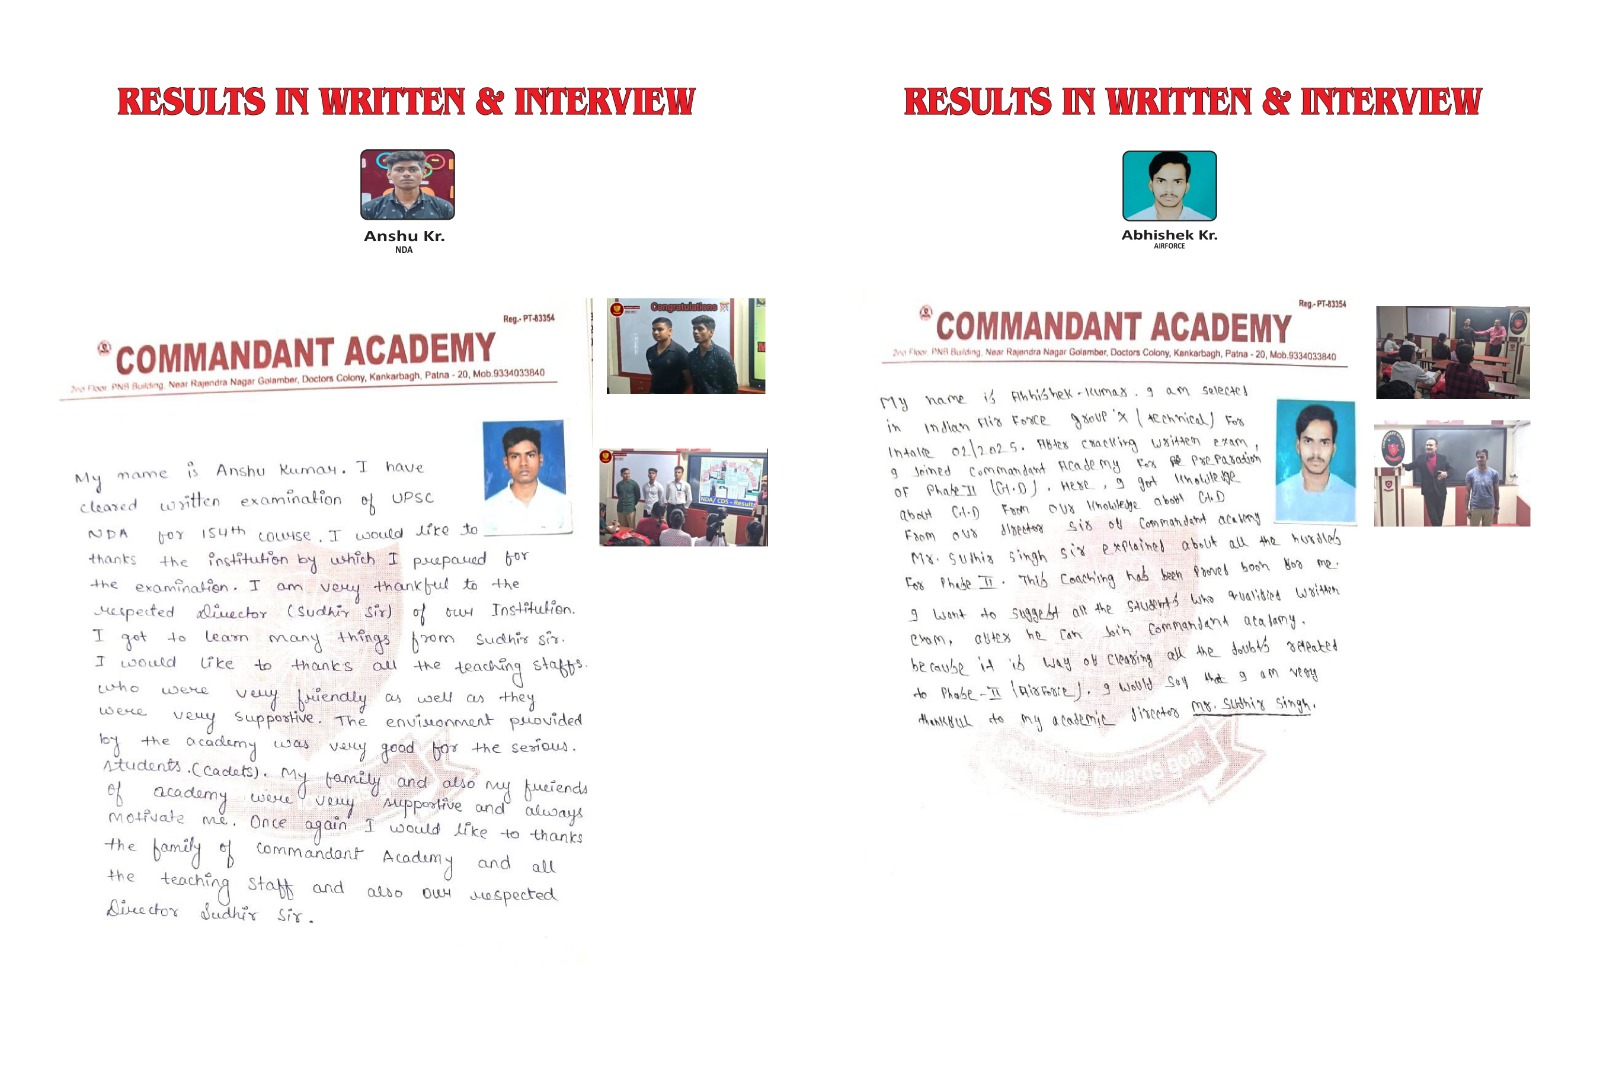 RESULTS IN WRITTEN & INTERVIEW
Anshu Kr.
NDA
Reg.- PT-83354
COMMANDANT ACADEMY
2nd Floor, PNB Building, Near Rajendra Nagar Golamber, Doctors Colony, Kankarbagh, Patna - 20, Mob.9334033840
My name is Anshu Kumar. I have
cleared written examination of UPSC
NDA for 154th course. I would like to
thanks the institution by which I prepared for
the examination. I am very thankful to the
respected Director (Sudhir Sir) of our Institution.
I got to learn many things from Sudhir Sir.
I would like to thanks all the teaching staffs.
who were very friendly as well as they
were very supportive. The environment provided
by the academy was very good for the serious.
students.(cadets). My family and also my freiends
of academy were very supportive and always
motivate me. Once again I would like to thanks
the family of commandant Academy and all
the teaching staff and also our respected
Director Sudhir Sir.
Congratulations
NDA/ CDS - Results
RESULTS IN WRITTEN & INTERVIEW
Abhishek Kr.
AIRFORCE
Reg.- PT-83354
COMMANDANT ACADEMY
2nd Floor, PNB Building, Near Rajendra Nagar Golamber, Doctors Colony, Kankarbagh, Patna - 20, Mob.9334033840
My name is Abhishek-Kumar. I am selected
in Indian Air Force group 'X (technical) For
Intake 02/2025. After cracking written exam,
I Joined Commandant Academy For Preparation
OF Phase II (G.D). Here, I got Knowledge
about G.D From our Knowledge about G.D
From our director sir of Commandant academy
Mr. Sudhir Singh sir explained about all the hurdles
For Phase II. This Coaching has been Proved boon for me.
I want to suggest all the students who qualified written
exam, after he can Join Commandant academy.
because it is way of clearing all the doubts related
to Phase-II (AirForce). I would say that I am very
thankful to my academic director Mr. Sudhir Singh.
towards goal